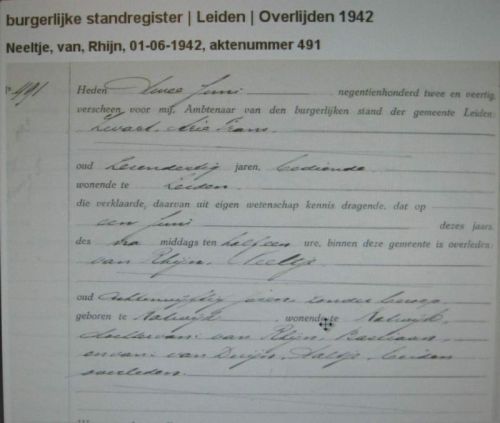 burgerlijke standregister | Leiden | Overlijden 1942
Neeltje, van, Rhijn, 01-06-1942, aktenummer 491
No. 491
Heden twee Juni negentienhonderd twee en veertig,
verscheen voor mij, Ambtenaar van den burgerlijken stand der gemeente Leiden:
Zwart, Arie Frans
oud zesendertig jaren, bediende
wonende te Leiden
die verklaarde, daarvan uit eigen wetenschap kennis dragende, dat op
een Juni dezes jaars
des na middags ten half een ure, binnen deze gemeente is overleden:
van Rhijn, Neeltje
oud achtenvijftig jaren zonder beroep
geboren te Katwijk wonende te Katwijk,
dochter van: van Rhijn, Bastiaan
en van: van Duijn, Aaltje, beiden
overleden.